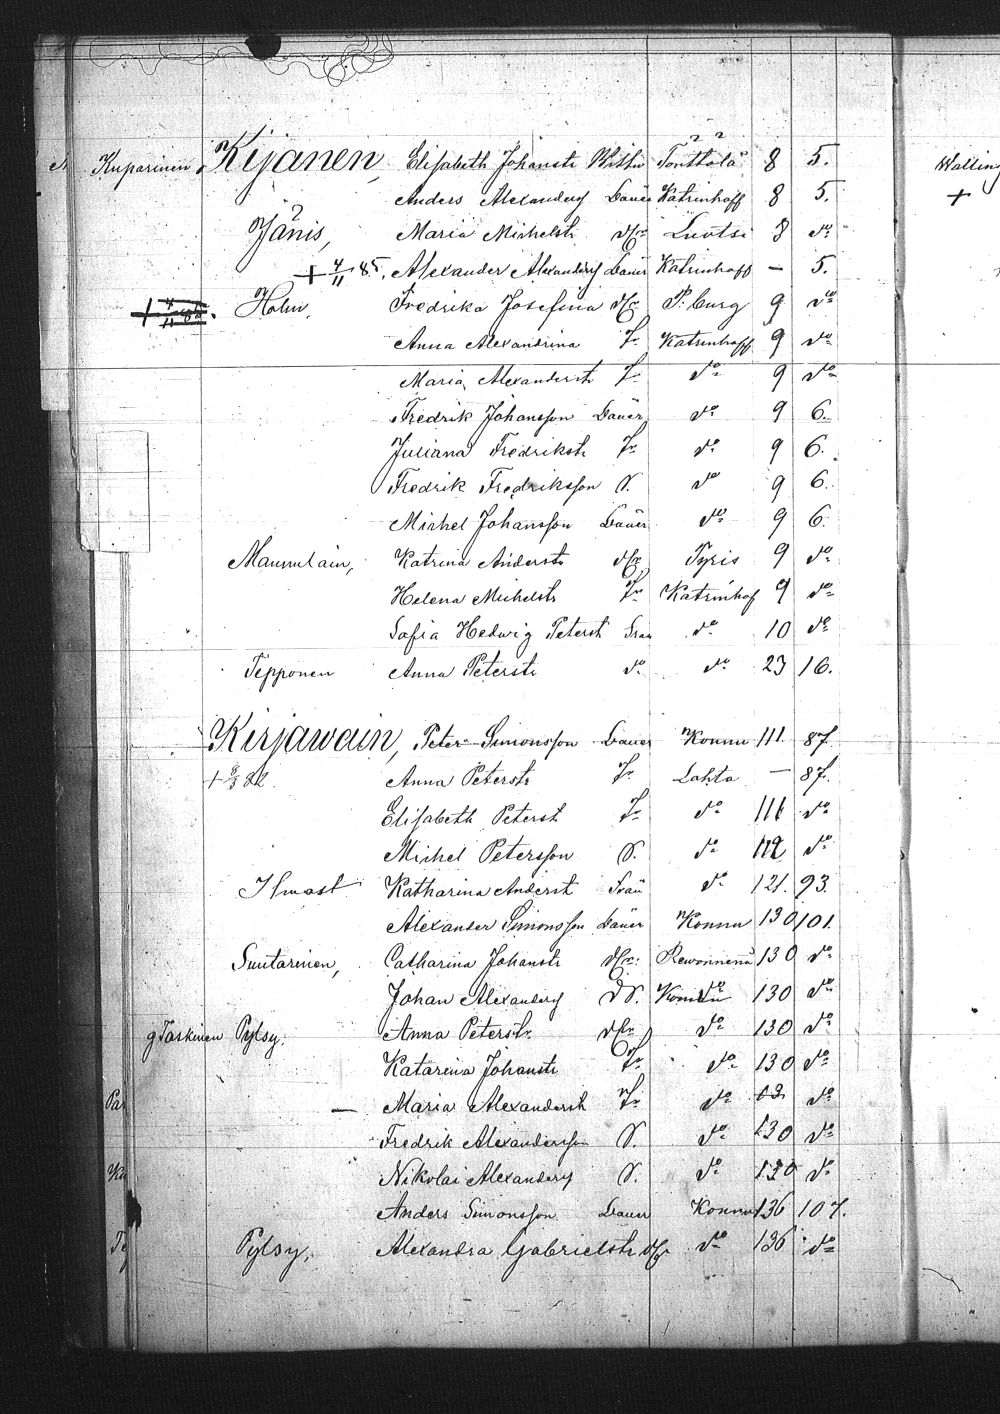 Kuparinen, Kijanen, Elisabeth Johanstr Tonttola 8 5. Walling
Anders Alexanders Bauer Katrinhoff 8 5. +
Jänis, Maria Michelstr Luutsi 8 do
+ 4/11 85. Alexander Alexanders Bauer Katrinhoff — 5.
Holm, Fredrika Josefina P: burg 9 do
Anna Alexandrina Tr Katrinhoff 9 do
Maria, Alexanderstr Tr do 9 do
Fredrik Johansson Bauer do 9 6.
Juliana Fredrikstr Tr do 9 6.
Fredrik Fredriksson S. do 9 6.
Michel Johansson Bauer do 9 6.
Katrina Anderstr Tyris 9 do
Helena Michelstr Tr Katrinhof 9 do
Sofia Hedwig Peterstr Frau do 10 do
Tepponen Anna Peterstr do do 23 16.
Kirjawain, Peter Simonsson Bauer Konnu 111 87.
+ 82 Anna Peterstr Tr Lahta — 87.
Elisabeth Peterstr Tr do 111 do
Michel Petersson S. do 112 do
Ilwast Katharina Anderst Frau do 121. 93.
Alexander Simonsson Bauer Konnu 130 101.
Suutarinen, Catharina Johanstr 130 do
Johan Alexanders S. Konnu 130 do
g Taskinen Pylsy, Anna Peterstr do 130 do
Katarina Johanstr Tr do 130 do
Par — Maria Alexanderstr Tr do do
Fredrik Alexandersson S. do 130 do
Ku Nikolai Alexanders S. do 130 do
Anders Simonsson Bauer Konnu 136 107.
Te Pylsy, Alexandra Gabrielstr do 136 do